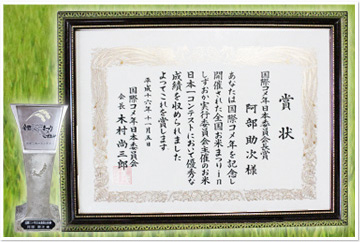 賞状
国際コメ年日本委員会長賞
阿部助次様
あなたは国際コメ年を記念し
開催された全国お米まつりin
しずおか実行委員会主催のお米
日本一コンテストにおいて優秀な
成績を収められました
よってこれを賞します
平成十六年十一月五日
国際コメ年日本委員会
会長 木村尚三郎